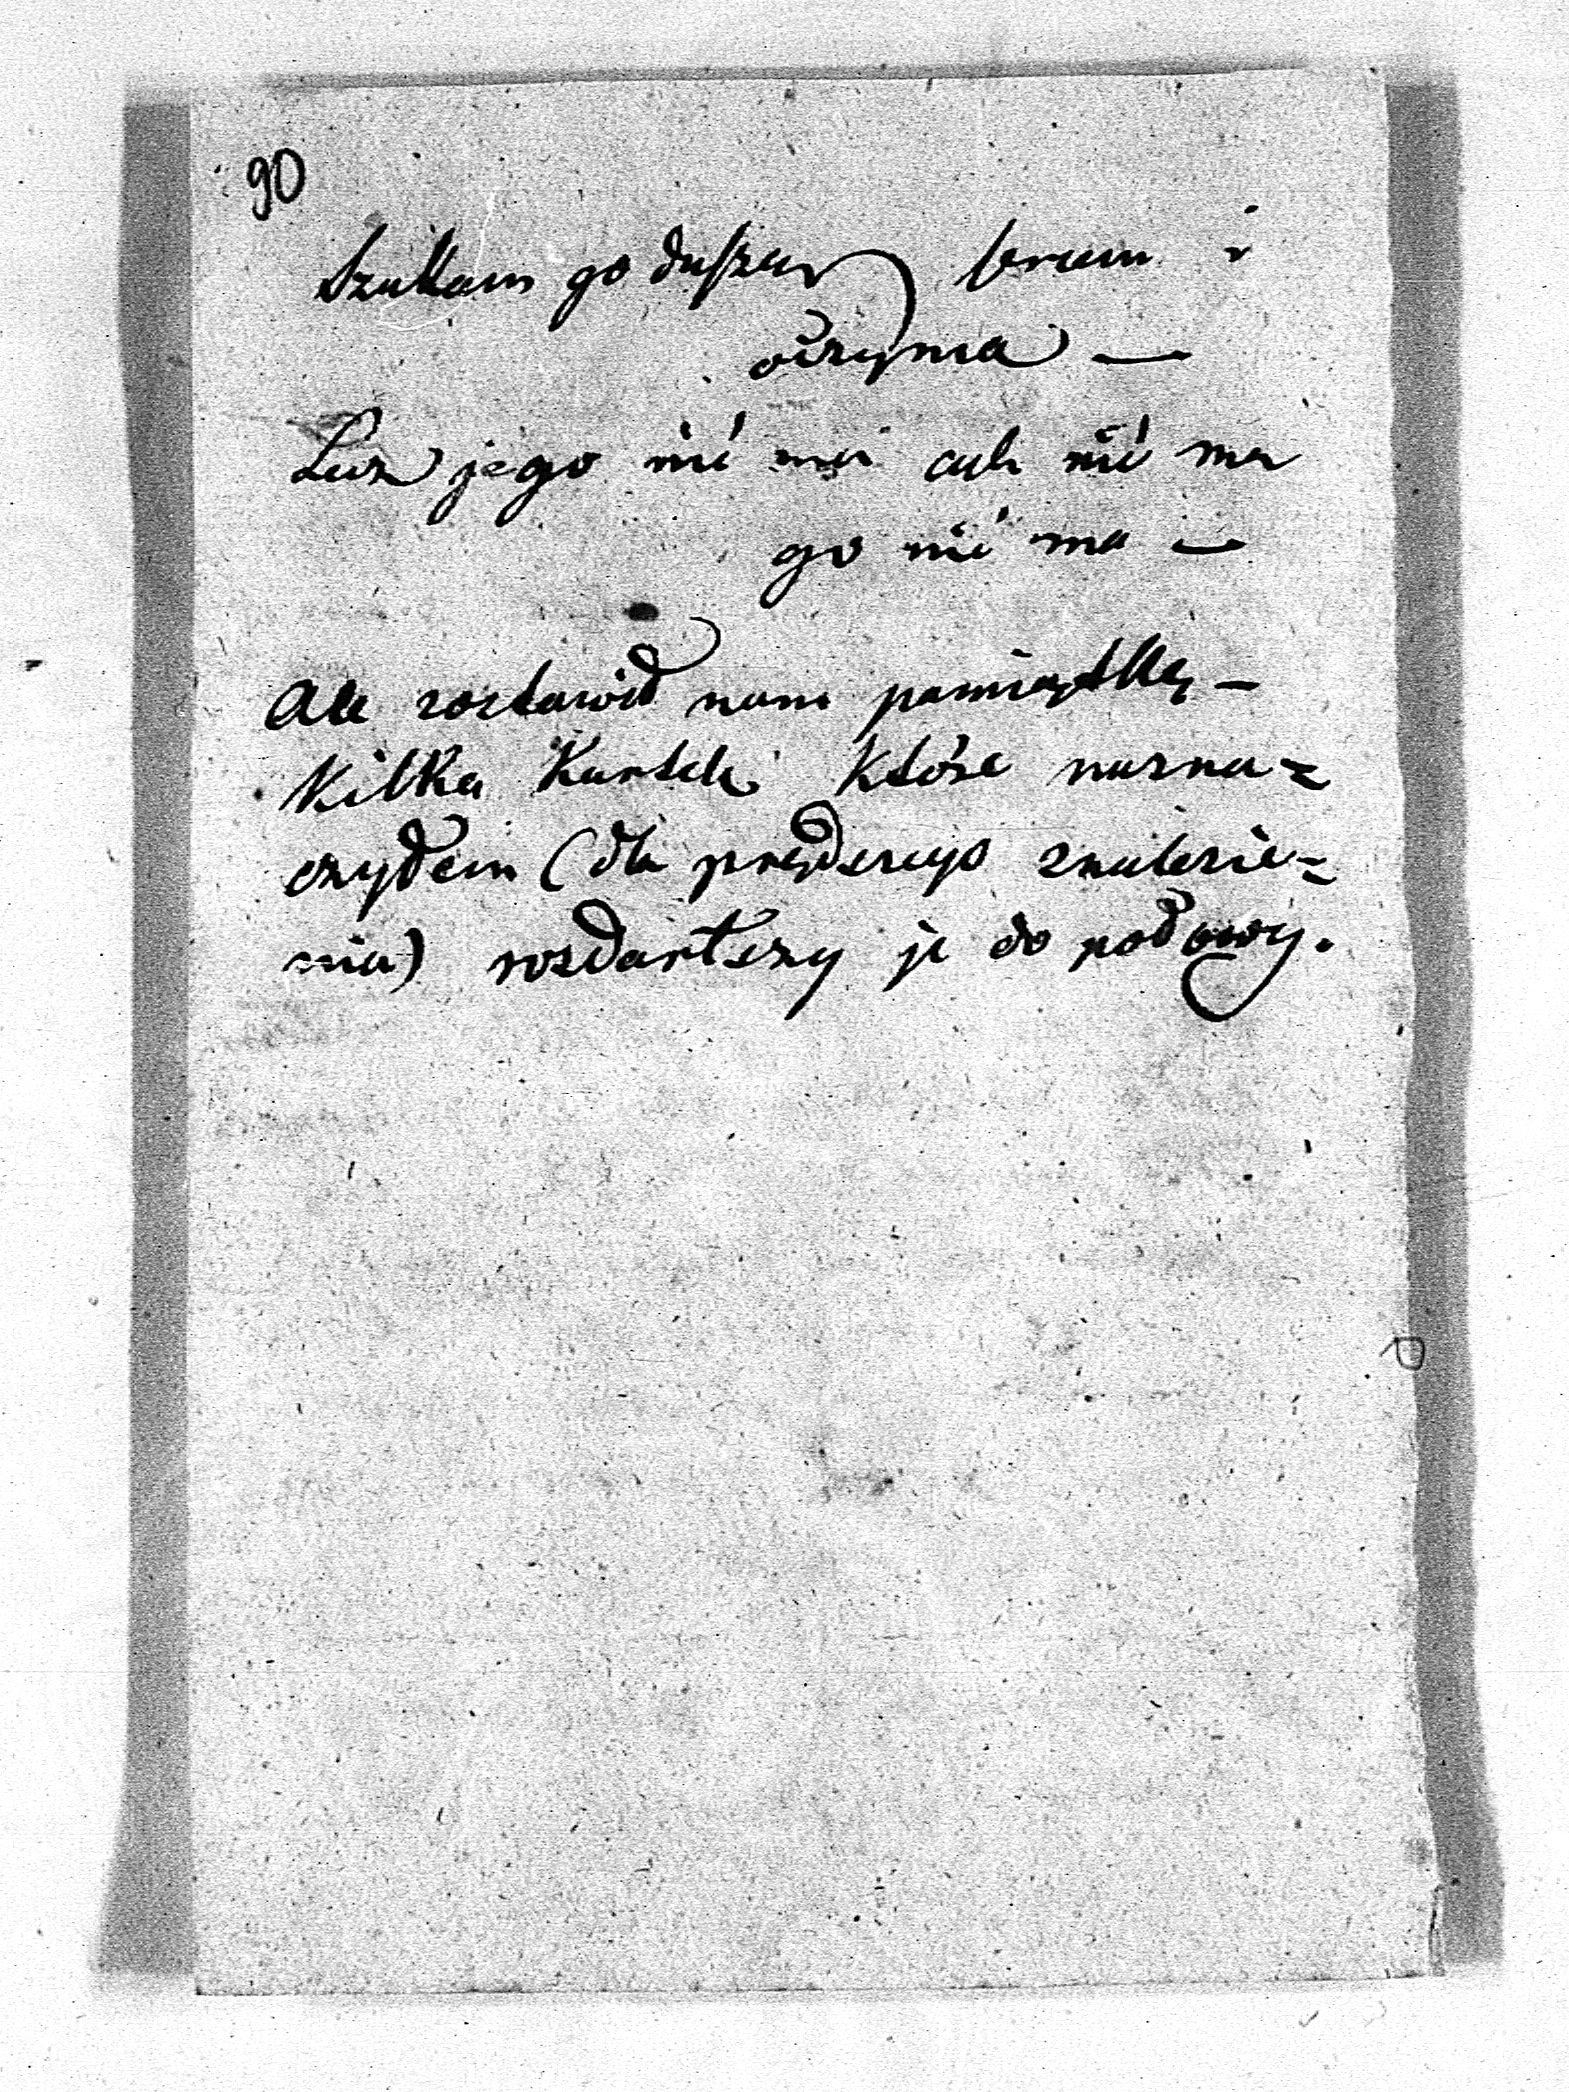 90
Szukam go duszą sercem i
oczyma —
Lecz jego nié ma ach nié ma
go nié ma —
Ale zostawił nam pamiątkę —
Kilka Kartek które nazna=
czyłem (dla prędszego znalezie=
nia) rozdartszy je do połowy.